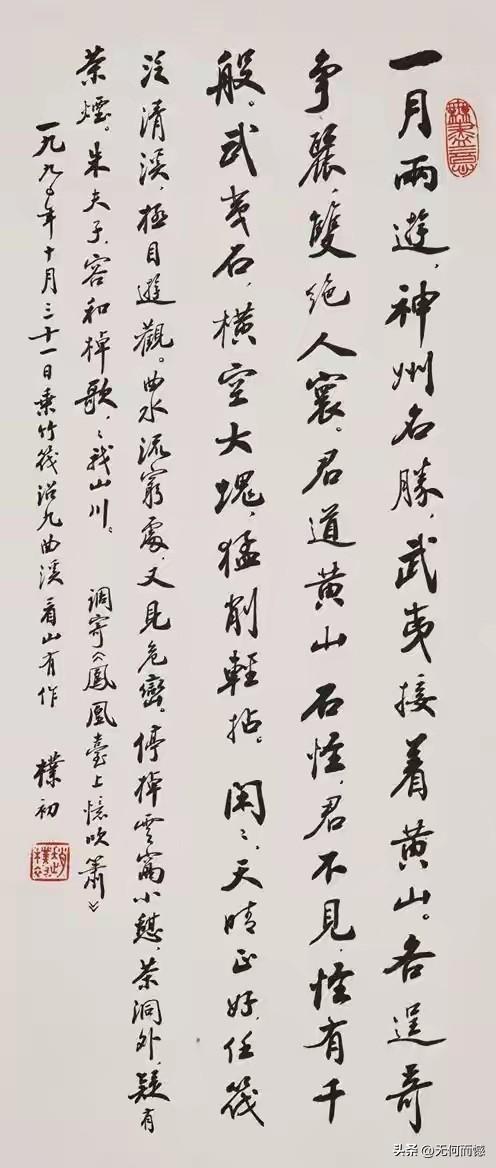 一月兩遊，神州名勝，武夷接着黄山。各逞奇
争麗，雙绝人寰。君道黄山石怪，君不見，怪有千
般。武夷石，横空大塊，猛削輕拈。閑〻，天晴正好，任筏
泛清溪，極目遊觀。曲水流窮處，又見危巒。停棹雲窩小憩，茶洞外，疑有
茶煙。朱夫子，容和棹歌，〻我山川。 調寄《鳳凰臺上憶吹簫》
一九九〇年十月三十一日乘竹筏沿九曲溪看山有作 樸初
趙樸初
头条 @无何而憾